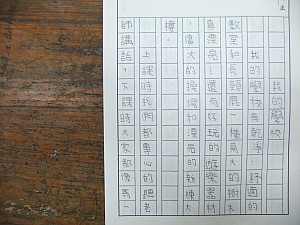 我的學校
我的學校有乾淨、舒適的
教室和長頸鹿一樣高大的樹木
真漂亮！還有好玩的遊樂器材
、廣大的操場和漂亮的新棟大
樓。
上課時我們都專心的聽老
師講話，下課時大家都像馬一